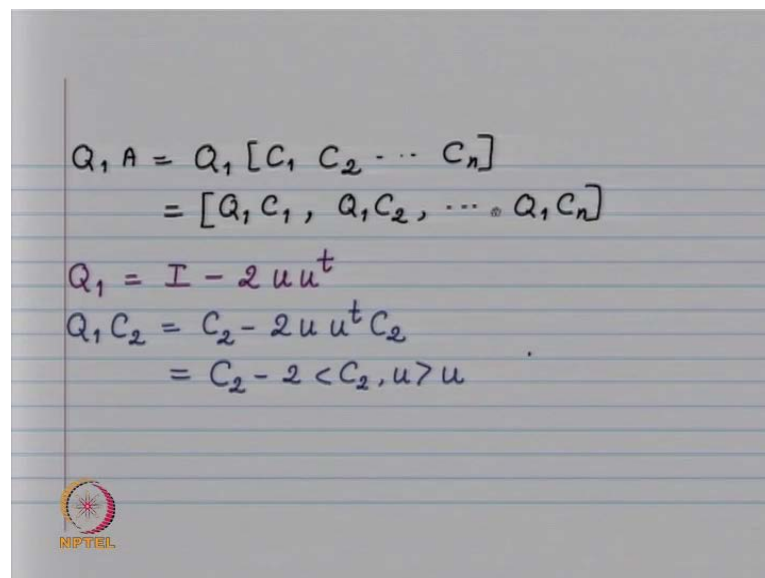 Q₁ A = Q₁ [C₁ C₂ ... Cₙ]
= [Q₁C₁, Q₁C₂, .... Q₁Cₙ]
Q₁ = I - 2 u uᵗ
Q₁C₂ = C₂ - 2 u uᵗ C₂
= C₂ - 2 <C₂, u> u
NPTEL